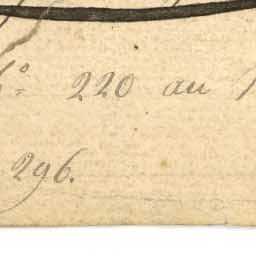 220 au
296.